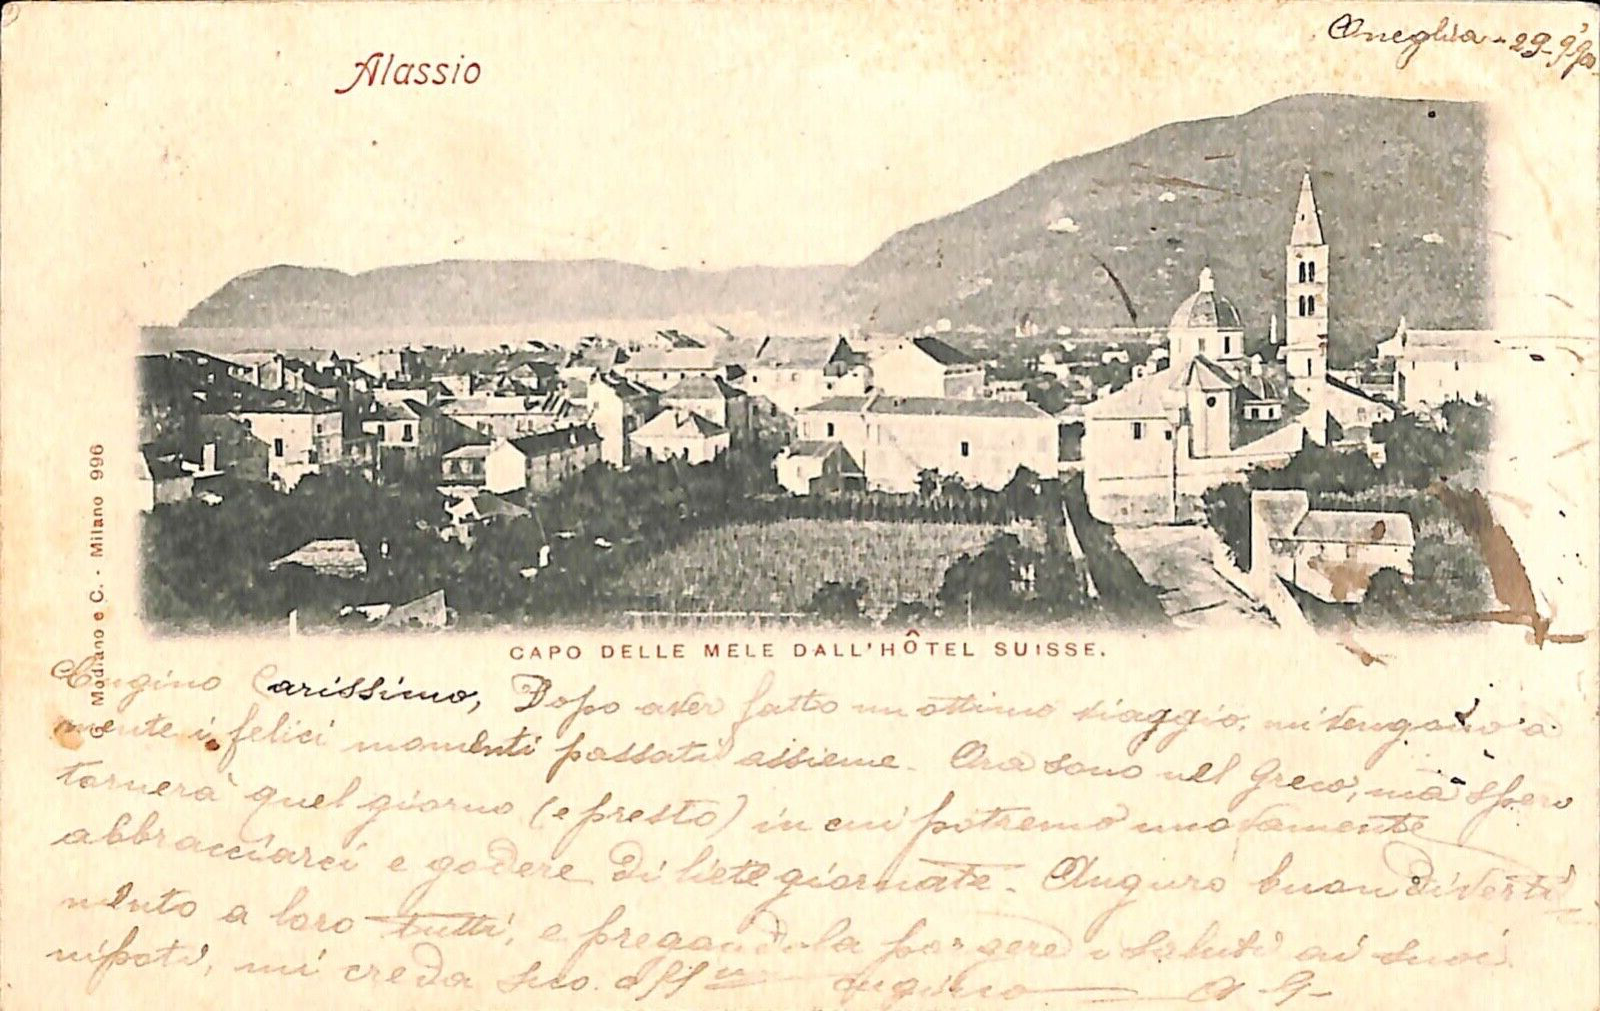 Oneglia - 29-9-900
Alassio
G. Modiano e C. - Milano 996
CAPO DELLE MELE DALL'HÔTEL SUISSE.
Cugino Carissimo, Dopo aver fatto un ottimo viaggio, mi vengono a
mente i felici momenti passati assieme. Ora sono nel Greco, ma spero
tornerà quel giorno (e presto) in cui potremo nuovamente
abbracciarci e godere di liete giornate. Auguro buon diverti
mento a loro tutti, e pregandola porgere i saluti ai suoi
nipoti, mi creda suo aff
cugino A G